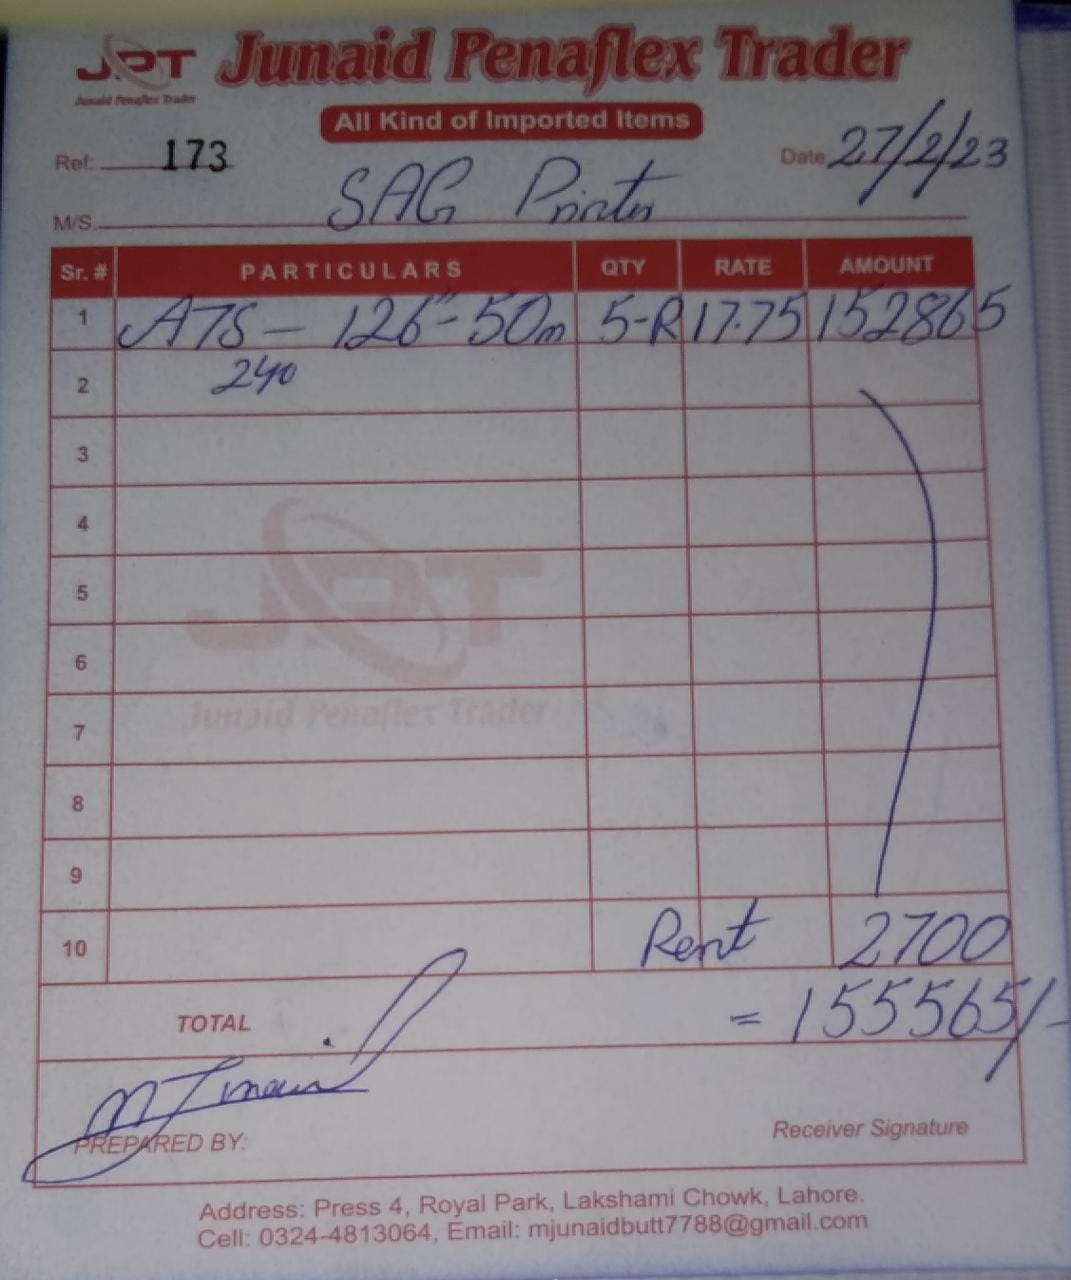 JPT Junaid Penaflex Trader
Junaid Penaflex Trader
All Kind of Imported Items
Ref: 173 Date 27/2/23
M/S. SAG Printer
Sr. # PARTICULARS QTY RATE AMOUNT
1 A7S - 126"-50m 5-R 17.75 152865
2 240
3
4
5
6
7
8
9
10 Rent 2700
JPT
Junaid Penaflex Trader
TOTAL = 155565/-
PREPARED BY: Receiver Signature
Address: Press 4, Royal Park, Lakshami Chowk, Lahore.
Cell: 0324-4813064, Email: mjunaidbutt7788@gmail.com